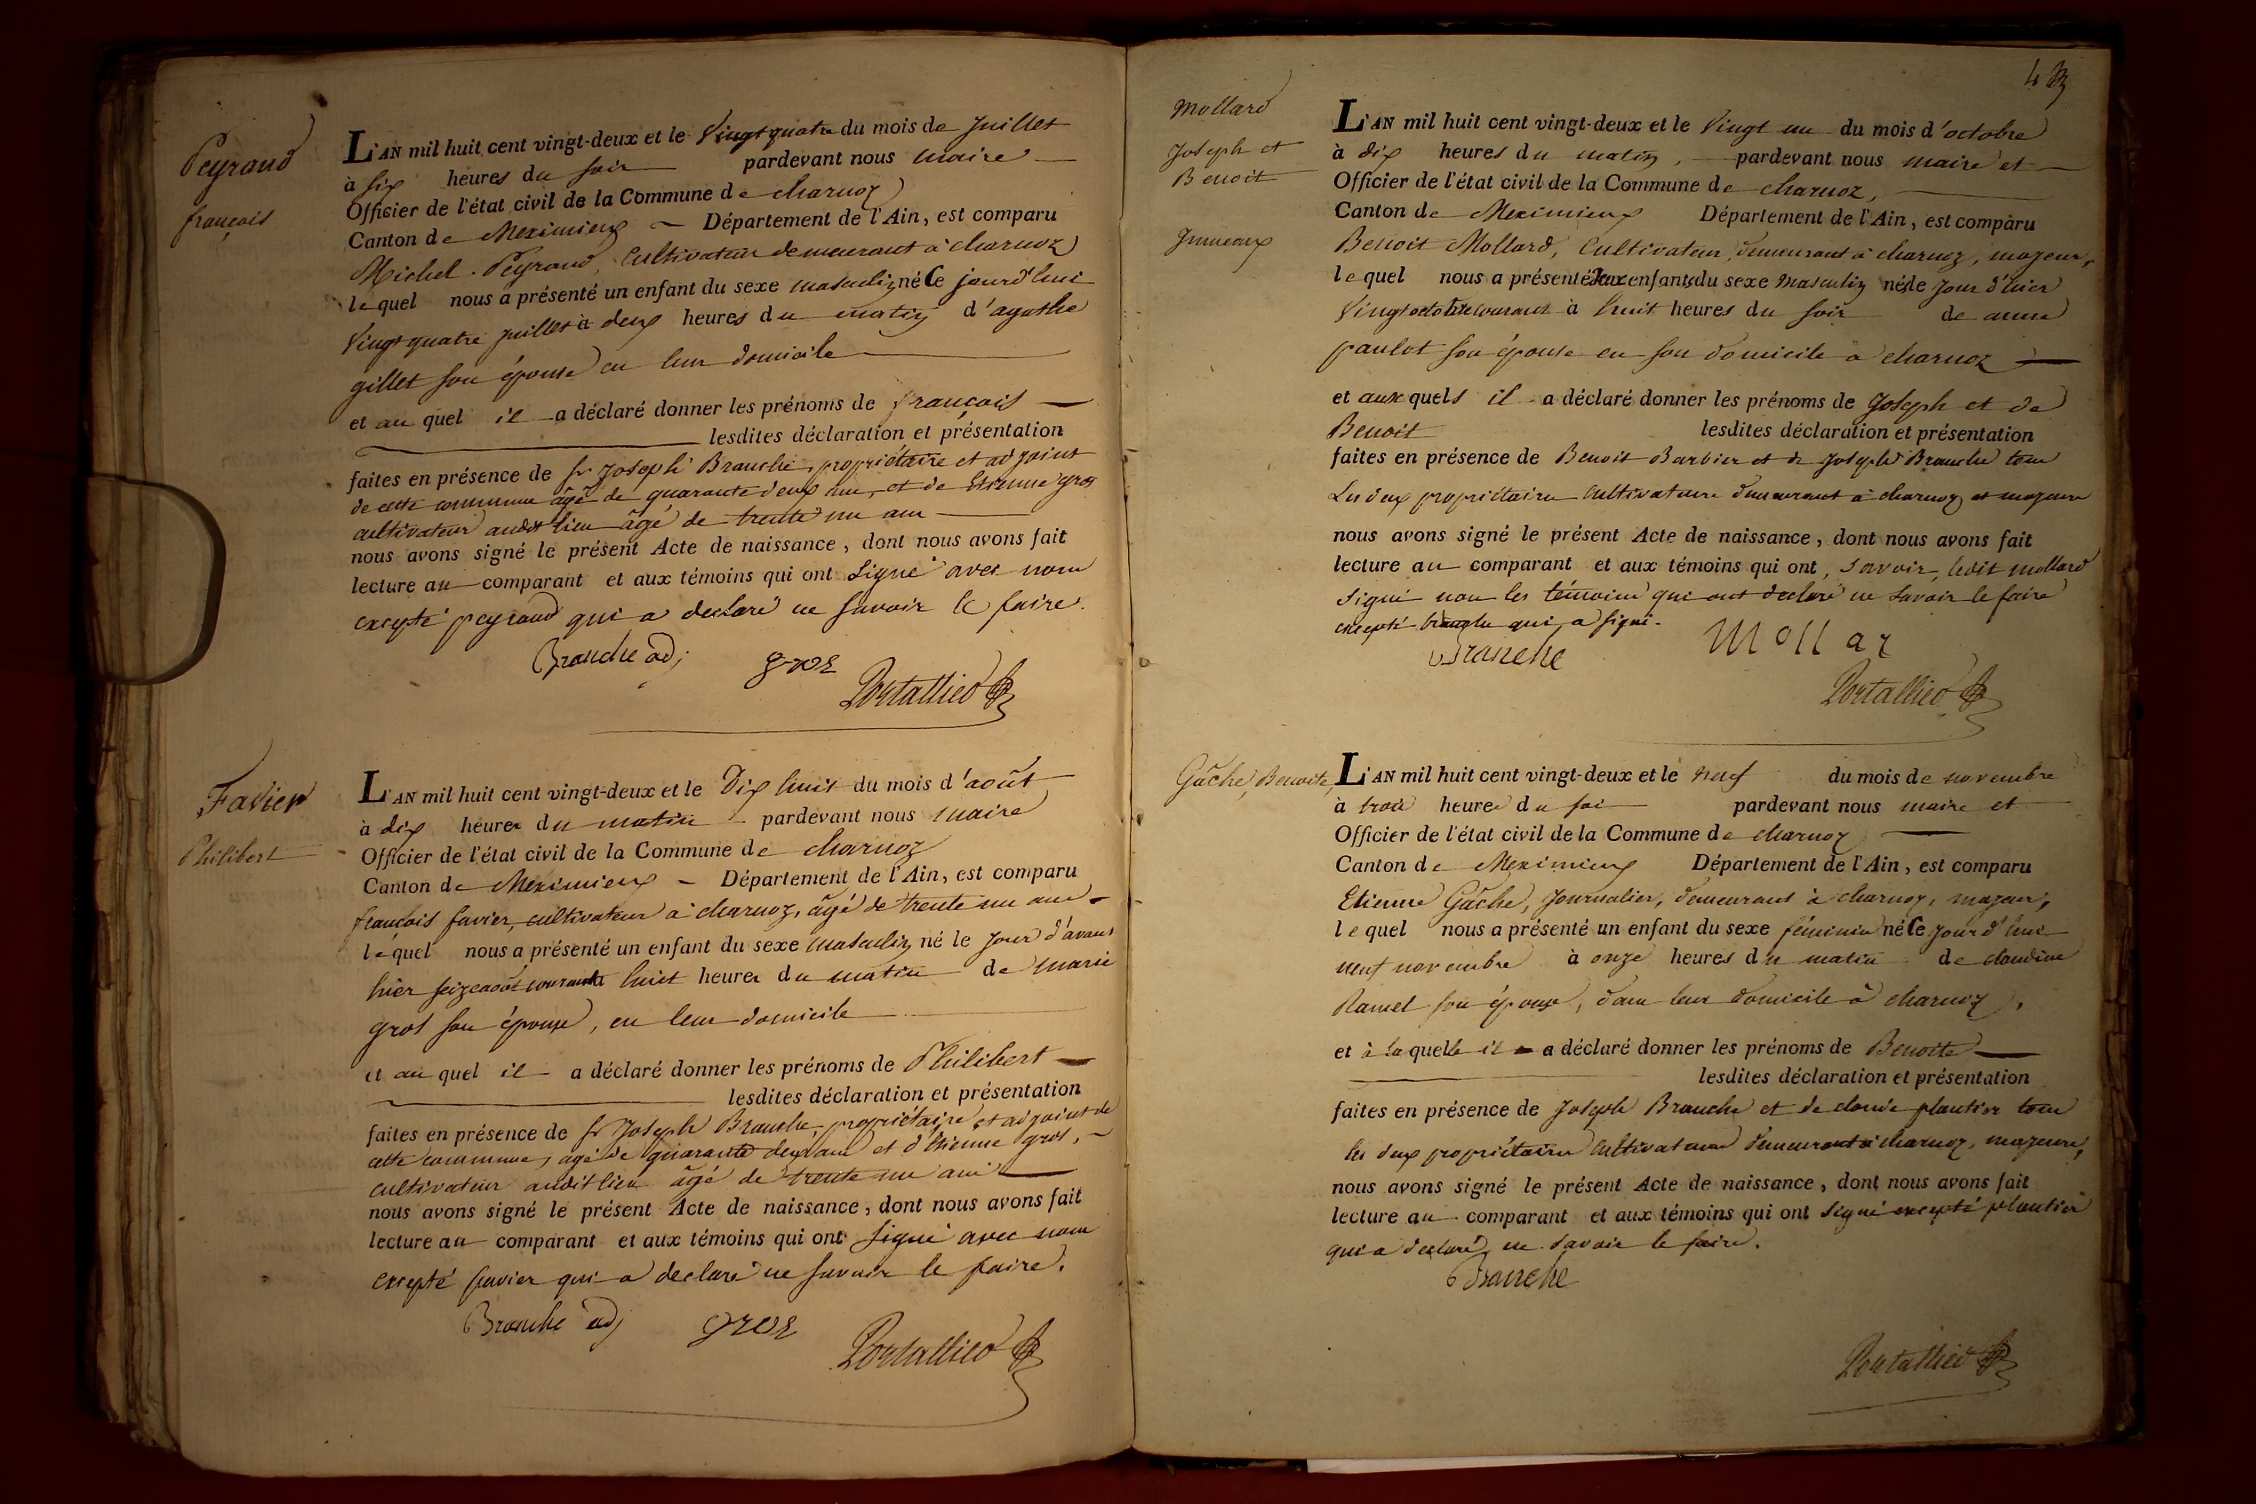 Peyraud
françois
L'AN mil huit cent vingt-deux et le Vingt quatre du mois de Juillet
à six heures du soir pardevant nous maire
Officier de l'état civil de la Commune de charnoz
Canton de Meximieux Département de l'Ain, est comparu
Michel Peyraud, Cultivateur demeurant à charnoz
lequel nous a présenté un enfant du sexe masculin né Ce jourd'hui
Vingt quatre juillet à deux heures du matin d'agathe
gillet son épouse en leur domicile
et au quel il a déclaré donner les prénoms de françois
lesdites déclaration et présentation
faites en présence de sr Joseph Branche, propriétaire et adjoint
de cette commune âgé de quarante deux ans, et de Etienne gros
cultivateur audit lieu âgé de trente un ans
nous avons signé le présent Acte de naissance, dont nous avons fait
lecture au comparant et aux témoins qui ont signé avec nous
excepté peyraud qui a déclaré ne savoir le faire.
Branche adj gros
Portallied
Favier
Philibert
L'AN mil huit cent vingt-deux et le Dix huit du mois d'août
à dix heures du matin pardevant nous maire
Officier de l'état civil de la Commune de charnoz
Canton de Meximieux Département de l'Ain, est comparu
françois favier, cultivateur à charnoz, âgé de trente un ans
lequel nous a présenté un enfant du sexe masculin né le jour d'avant
hier seize août courant à huit heures du matin de Marie
gros son épouse, en leur domicile
et au quel il a déclaré donner les prénoms de Philibert
lesdites déclaration et présentation
faites en présence de sr Joseph Branche, propriétaire et adjoint de
cette commune, âgé de quarante deux ans et d'Etienne gros,
cultivateur audit lieu âgé de trente un ans
nous avons signé le présent Acte de naissance, dont nous avons fait
lecture au comparant et aux témoins qui ont signé avec nous
excepté favier qui a déclaré ne savoir le faire.
Branche adj gros
Portallied
4
Mollard
Joseph et
Benoit
Jumeaux
L'AN mil huit cent vingt-deux et le Vingt un du mois d'octobre
à dix heures du matin, pardevant nous maire et
Officier de l'état civil de la Commune de charnoz,
Canton de Meximieux Département de l'Ain, est comparu
Benoit Mollard, Cultivateur, demeurant à charnoz, majeur,
lequel nous a présenté deux enfants du sexe Masculin nés le jour d'hier
Vingt octobre courant à huit heures du soir de anne
paulot son épouse en son domicile à charnoz
et aux quels il a déclaré donner les prénoms de Joseph et de
Benoit lesdites déclaration et présentation
faites en présence de Benoit Barbier et de Joseph Branche tous
Les deux propriétaires cultivateurs demeurant à charnoz et majeurs
nous avons signé le présent Acte de naissance, dont nous avons fait
lecture au comparant et aux témoins qui ont, savoir, ledit mollard
signé non les témoins qui ont déclaré ne savoir le faire
excepté branche qui a signé.
Branche Mollar
Portallied
Gâche, Benoite,
L'AN mil huit cent vingt-deux et le neuf du mois de novembre
à trois heures du soir pardevant nous maire et
Officier de l'état civil de la Commune de charnoz
Canton de Meximieux Département de l'Ain, est comparu
Etienne Gâche, Journalier, demeurant à charnoz, majeur,
lequel nous a présenté un enfant du sexe féminin né Ce jour d'hui
neuf novembre à onze heures du matin de claudine
Ramel son épouse, dans leur domicile à charnoz,
et à la quelle il a déclaré donner les prénoms de Benoite
lesdites déclaration et présentation
faites en présence de Joseph Branche et de claude plantier tous
les deux propriétaires cultivateurs demeurant à charnoz, majeurs,
nous avons signé le présent Acte de naissance, dont nous avons fait
lecture au comparant et aux témoins qui ont signé excepté plantier
qui a déclaré ne savoir le faire.
Branche
Portallied